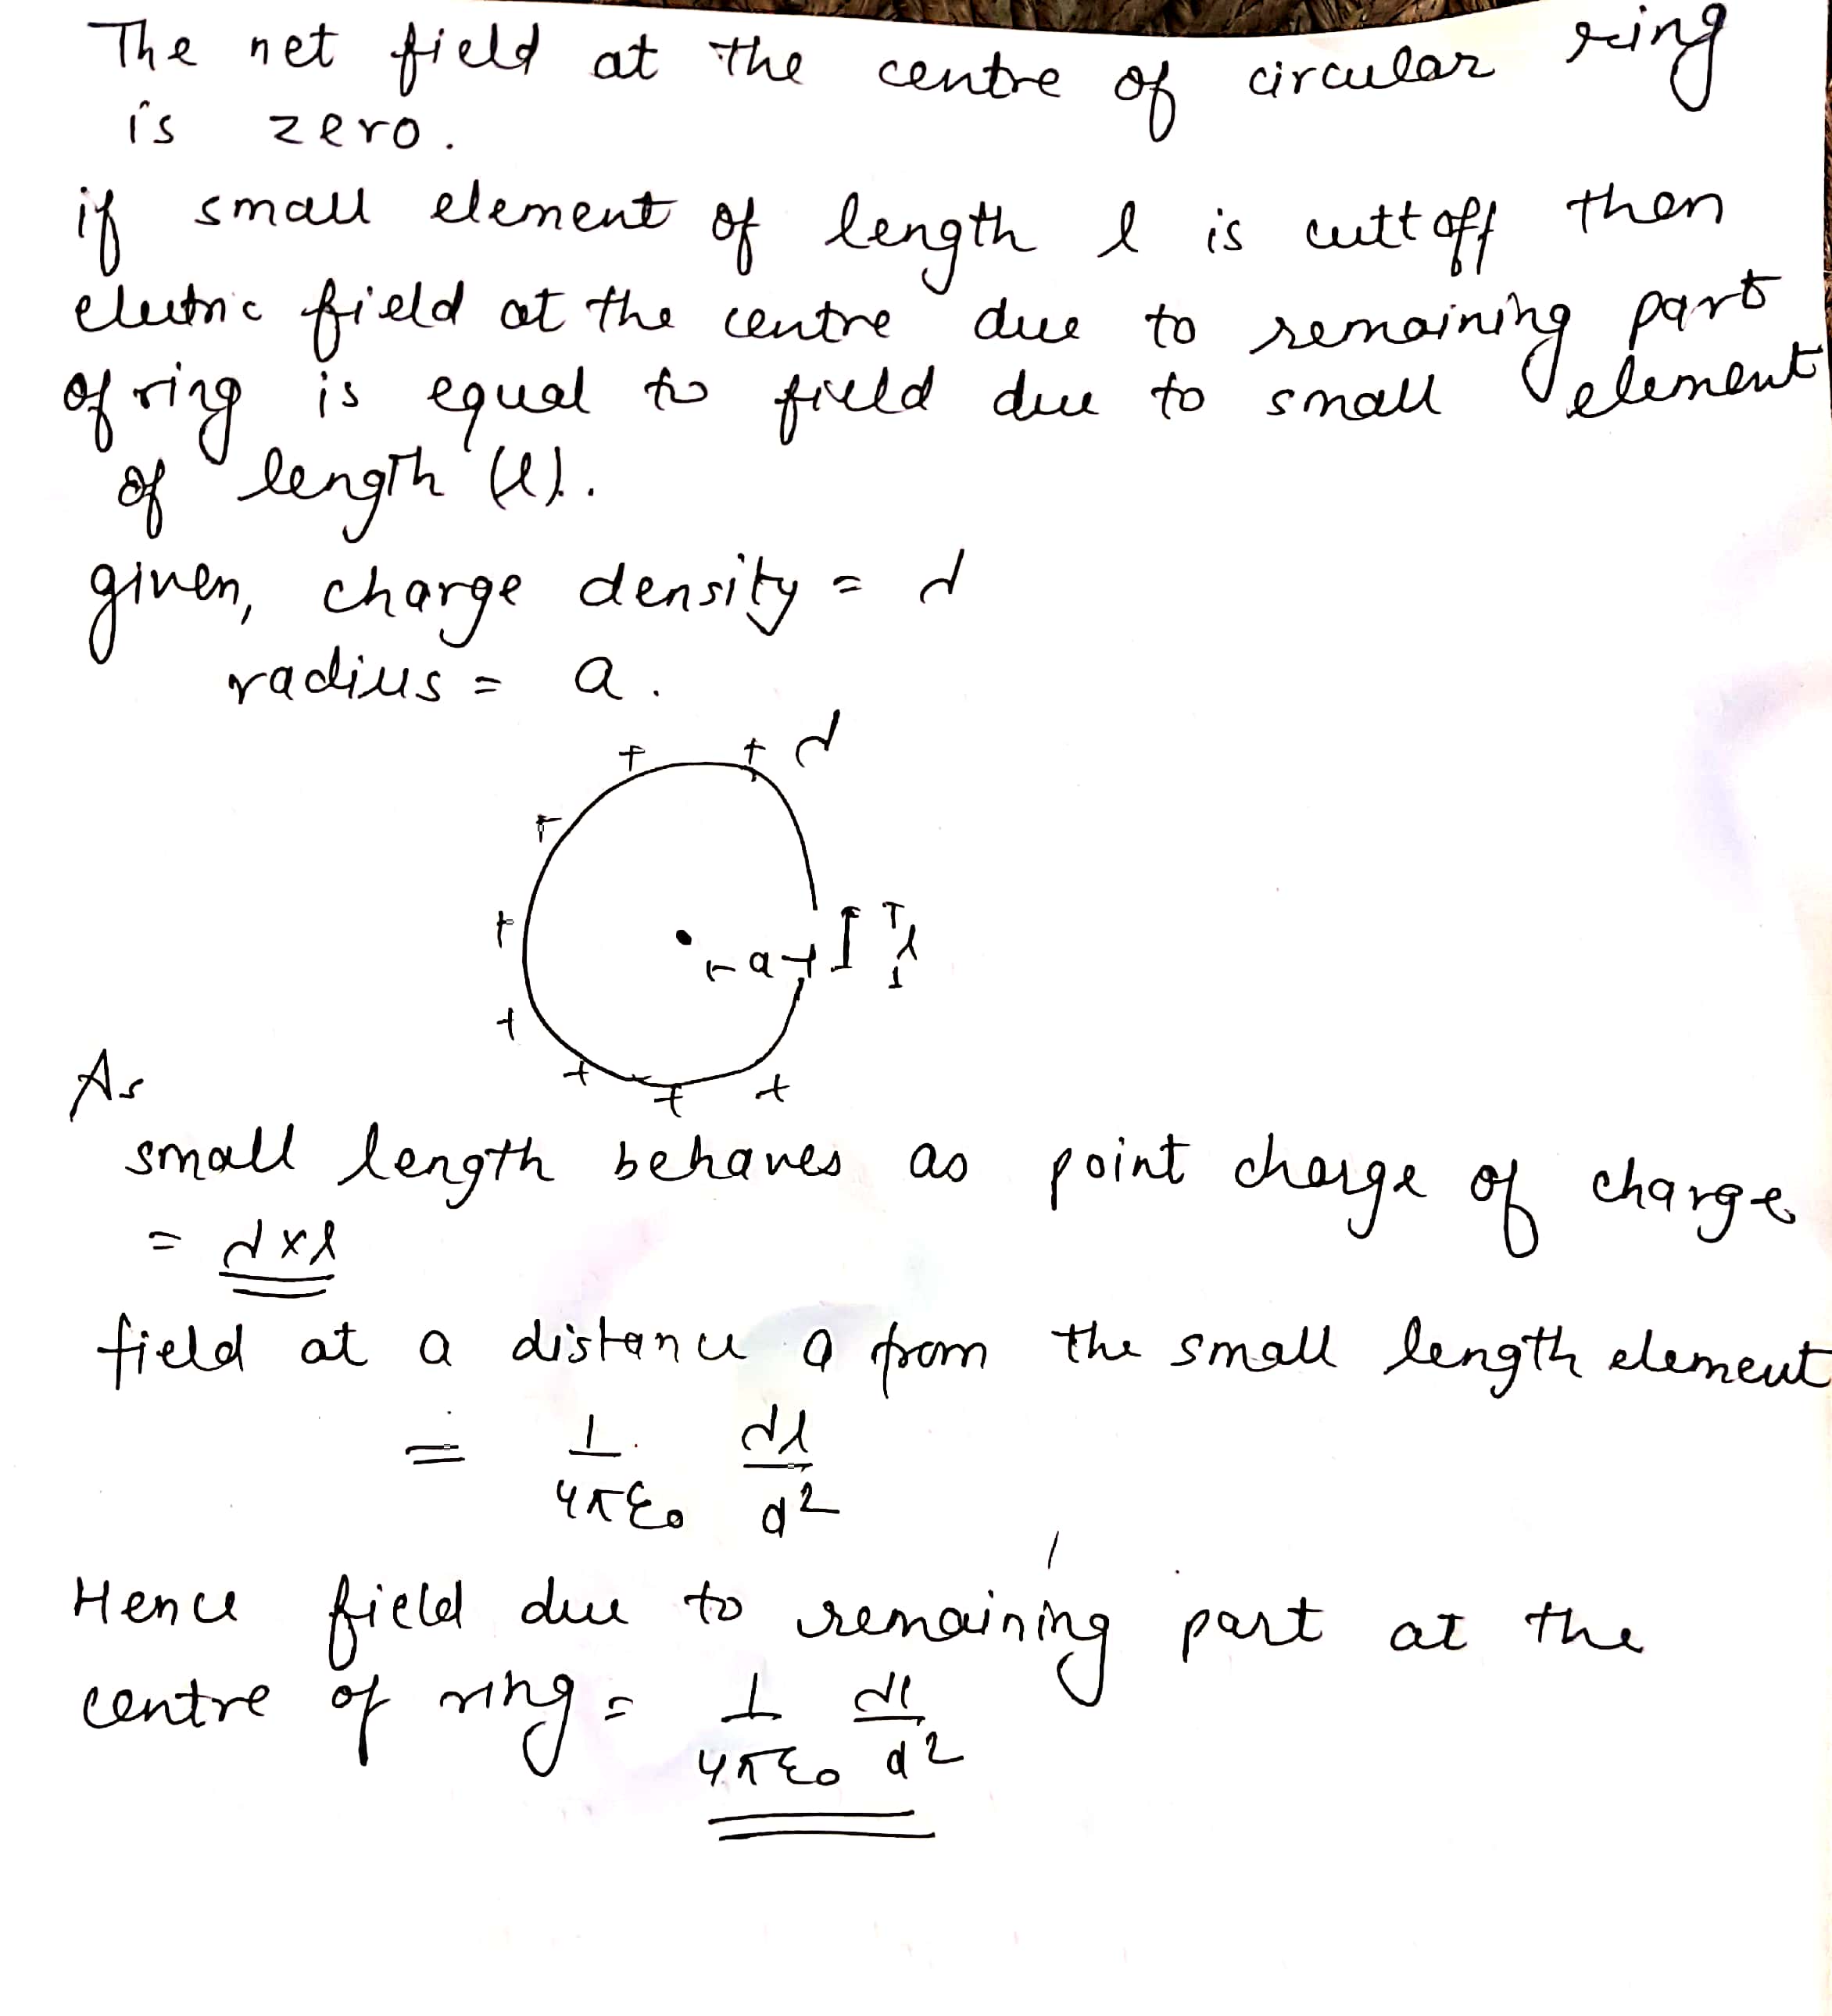 The net field at the centre of circular ring
is zero.
if small element of length l is cutt off then
electric field at the centre due to remaining part
of ring is equal to field due to small element
of length (l).
given, charge density = d
radius = a.
+ + d
+
+
a l
+
+ + +
As
small length behaves as point charge of charge
= d×l
field at a distance a from the small length element
= 1/4πε₀ dl/a²
Hence field due to remaining part at the
centre of ring = 1/4πε₀ dl/a²